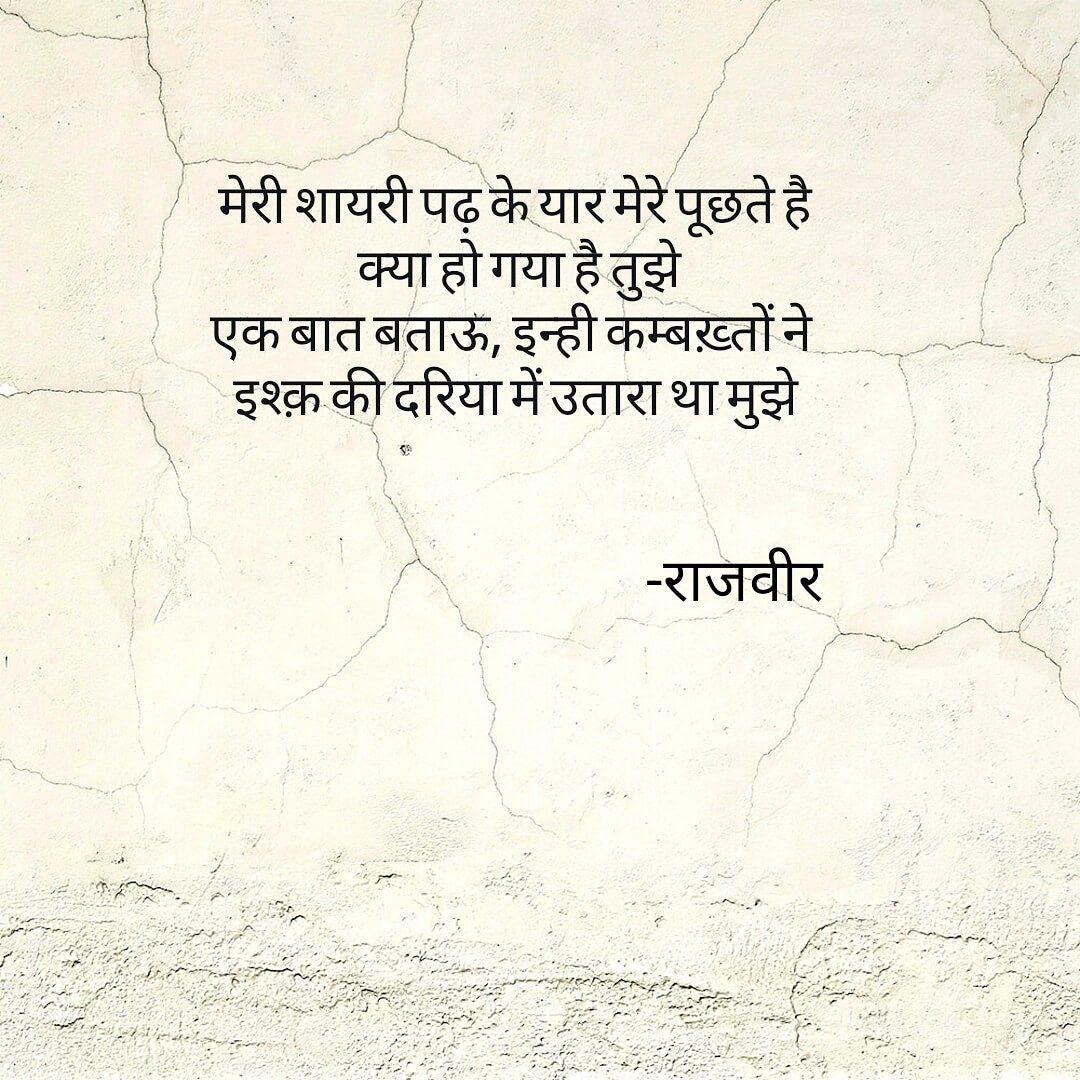 मेरी शायरी पढ़ के यार मेरे पूछते है
क्या हो गया है तुझे
एक बात बताऊं, इन्ही कम्बख़्तों ने
इश्क़ की दरिया में उतारा था मुझे
-राजवीर